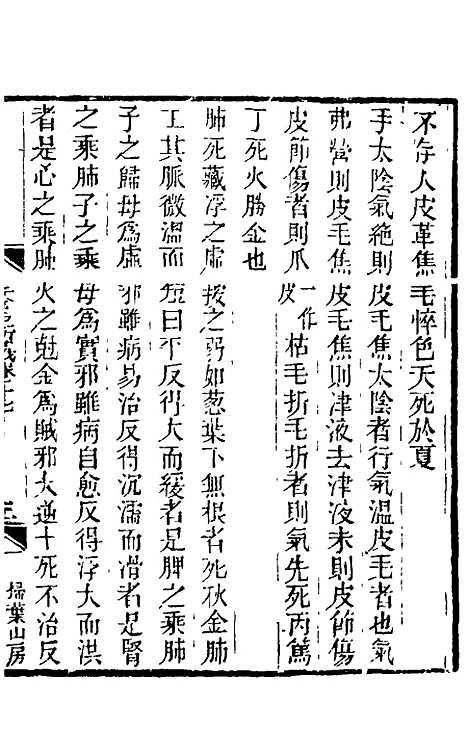 不存人皮革焦毛悴色夭死於夏
手太陰氣絶則皮毛焦太陰者行氣溫皮毛者也氣
弗營則皮毛焦皮毛焦則津液去津液去則皮節傷
皮節傷者則爪一作皮枯毛折毛折者則氣先死丙篤
丁死火勝金也
肺死藏浮之虛按之弱如葱葉下無根者死秋金肺
王其脈微濇而短曰平反得大而緩者是脾之乘肺
子之歸母爲虛邪雖病易治反得沉濡而滑者是腎
之乘肺子之乘母爲實邪雖病自愈反得浮大而洪
者是心之乘肺火之尅金爲賊邪大逆十死不治反
掃葉山房